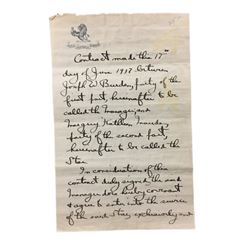 Contract made this 17th
day of June 1917 between
Joseph W. Burden, party of the
first part, hereinafter to be
called the Manager; and
Kathleen
party of the second part,
hereinafter to be called the
Star.
In consideration of this
contract duly signed, the said
Manager does hereby covenant
& agree to enter into the service
of the said Star, exclusively and